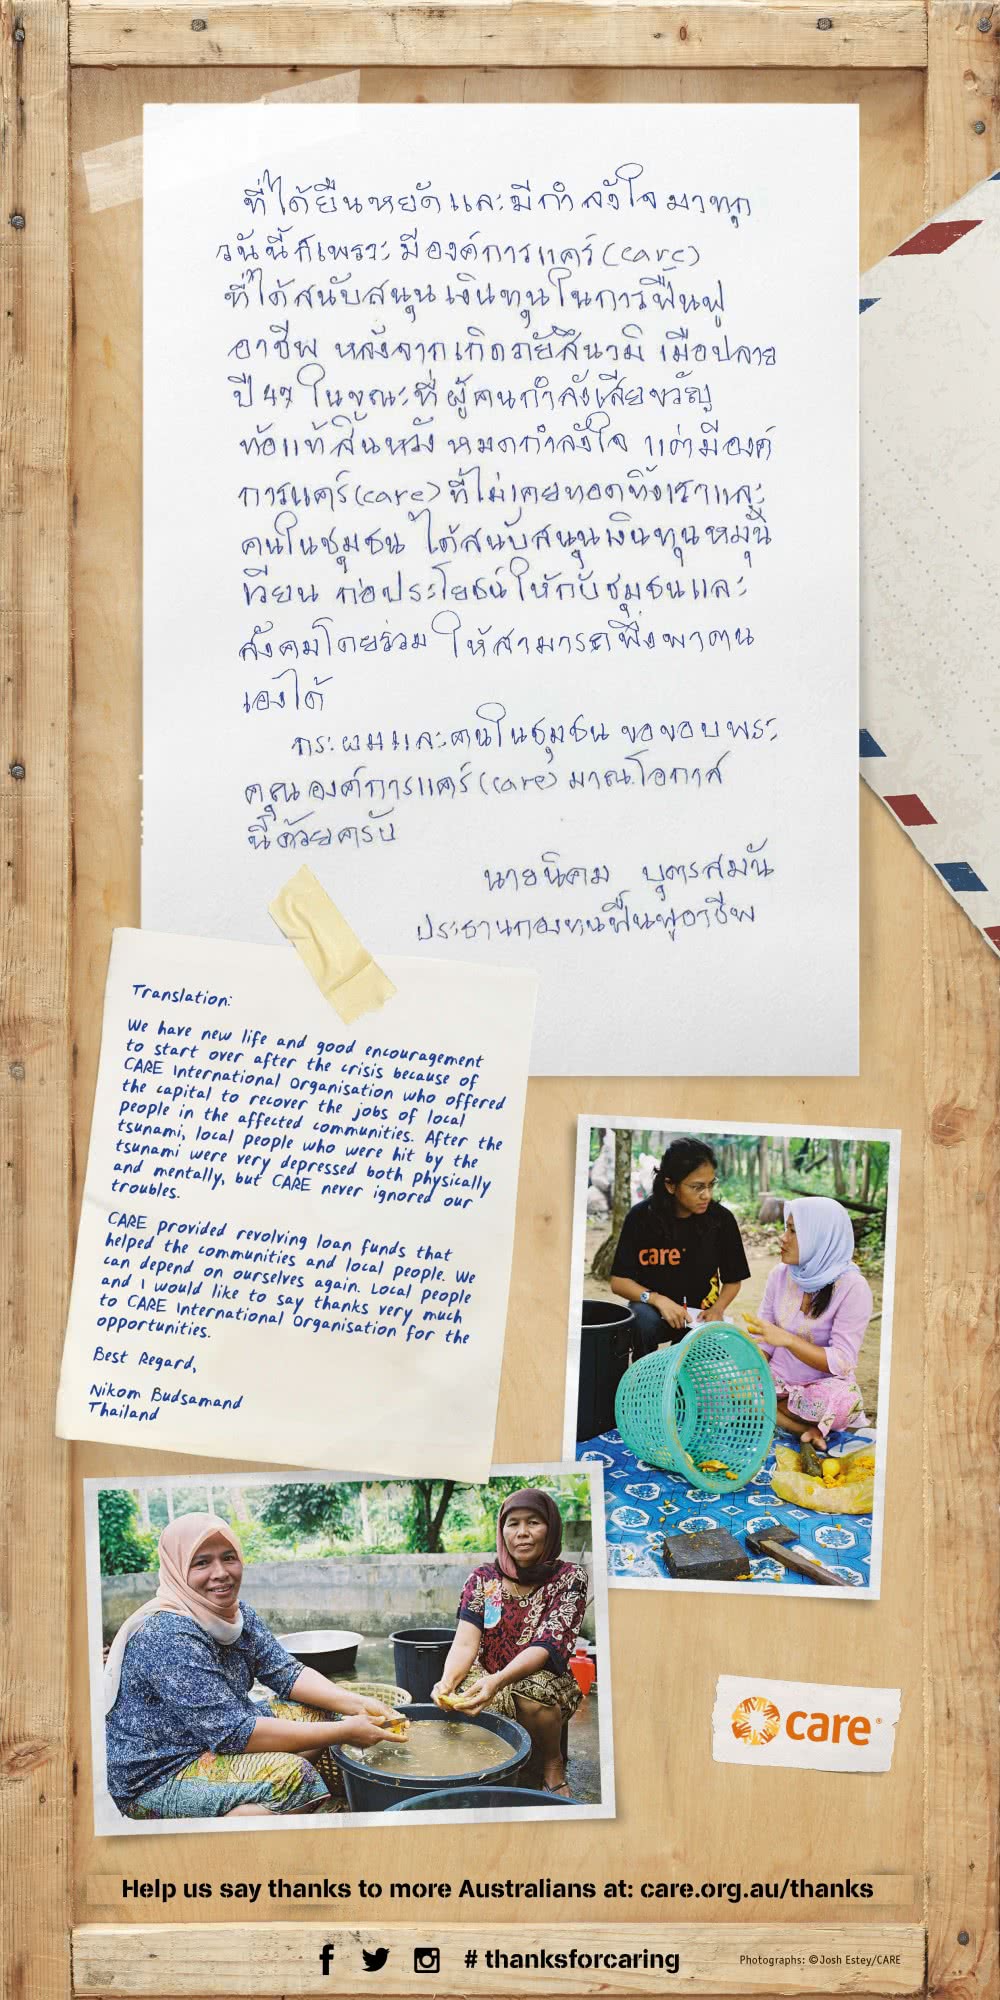 ที่ได้ยืนหยัดและมีกำลังใจมาทุก
วันนี้ก็เพราะมีองค์การแคร์(care)
ที่ได้สนับสนุนเงินทุนในการฟื้นฟู
อาชีพ หลังจากเกิดภัยสึนามิ เมื่อปลาย
ปี 47 ในขณะที่ผู้คนกำลังเสียขวัญ
ท้อแท้สิ้นหวัง หมดกำลังใจ แต่มีองค์
การแคร์(care) ที่ไม่เคยทอดทิ้งเราและ
คนในชุมชน ได้สนับสนุนเงินทุนหมุน
เวียน ก่อประโยชน์ให้กับชุมชนและ
สังคมโดยร่วม ให้สามารถพึ่งพาตน
เองได้
กระผมและคนในชุมชน ขอขอบพระ
คุณองค์การแคร์(care) มาณ.โอกาส
นี้ด้วยครับ
นายนิคม บุตรสมัน
ประธานกองทุนฟื้นฟูอาชีพ
Translation:
We have new life and good encouragement
to start over after the crisis because of
CARE International Organisation who offered
the capital to recover the jobs of local
people in the affected communities. After the
tsunami, local people who were hit by the
tsunami were very depressed both physically
and mentally, but CARE never ignored our
troubles.
CARE provided revolving loan funds that
helped the communities and local people. We
can depend on ourselves again. Local people
and I would like to say thanks very much
to CARE International Organisation for the
opportunities.
Best Regard,
Nikom Budsamand
Thailand
care
care®
Help us say thanks to more Australians at: care.org.au/thanks
# thanksforcaring
Photographs: ©Josh Estey/CARE